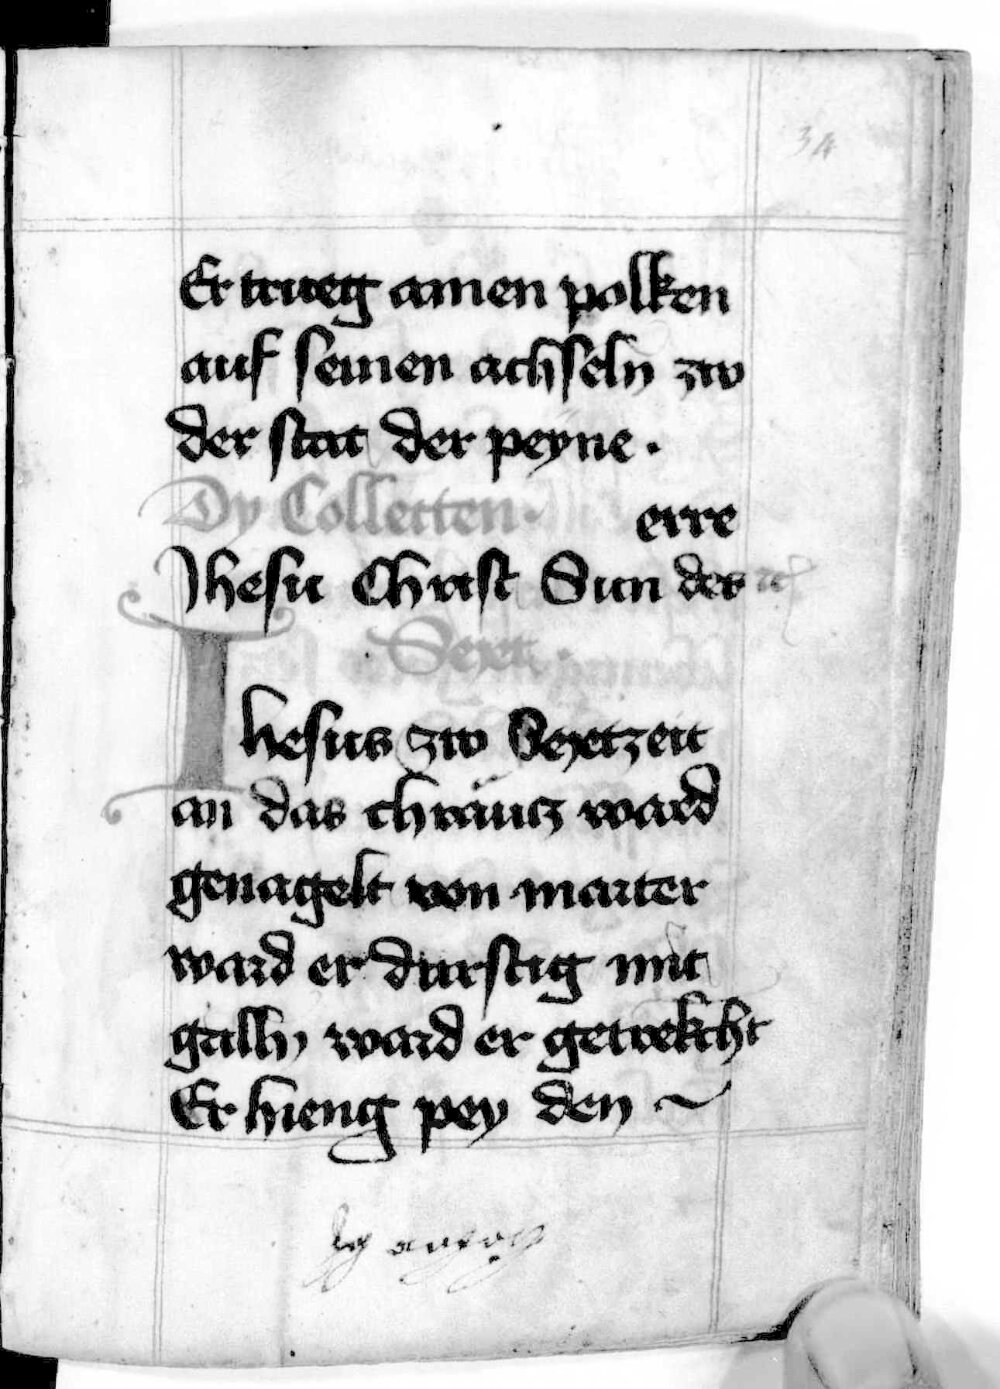 34
Er trueg ainen polken
auf seinen achseln zw
der stat der peyne .
Dy Collecten . erre
Jhesu Christ Sun des
. Sext .
Ihesus zw Sextzeit
an das chräucz ward
genagelt von marter
ward er durstig mit
galln ward er getrekcht
Er hieng pey den ~